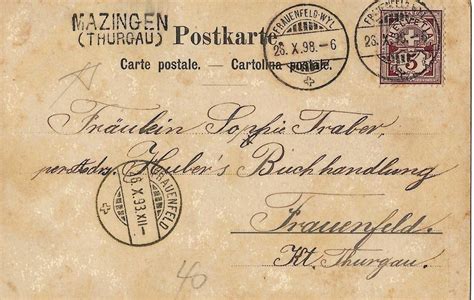 MAZINGEN
(THURGAU)
Postkarte
Carte postale. — Cartolina postale.
FRAUENFELD-WYL
26. X. 98. - 6
FRAUENFELD-WYL
5
Fräulein Sophie Traber,
per Adr. Huber's Buchhandlung
Frauenfeld.
Kt. Thurgau.
FRAUENFELD
X. 93. XII -
40